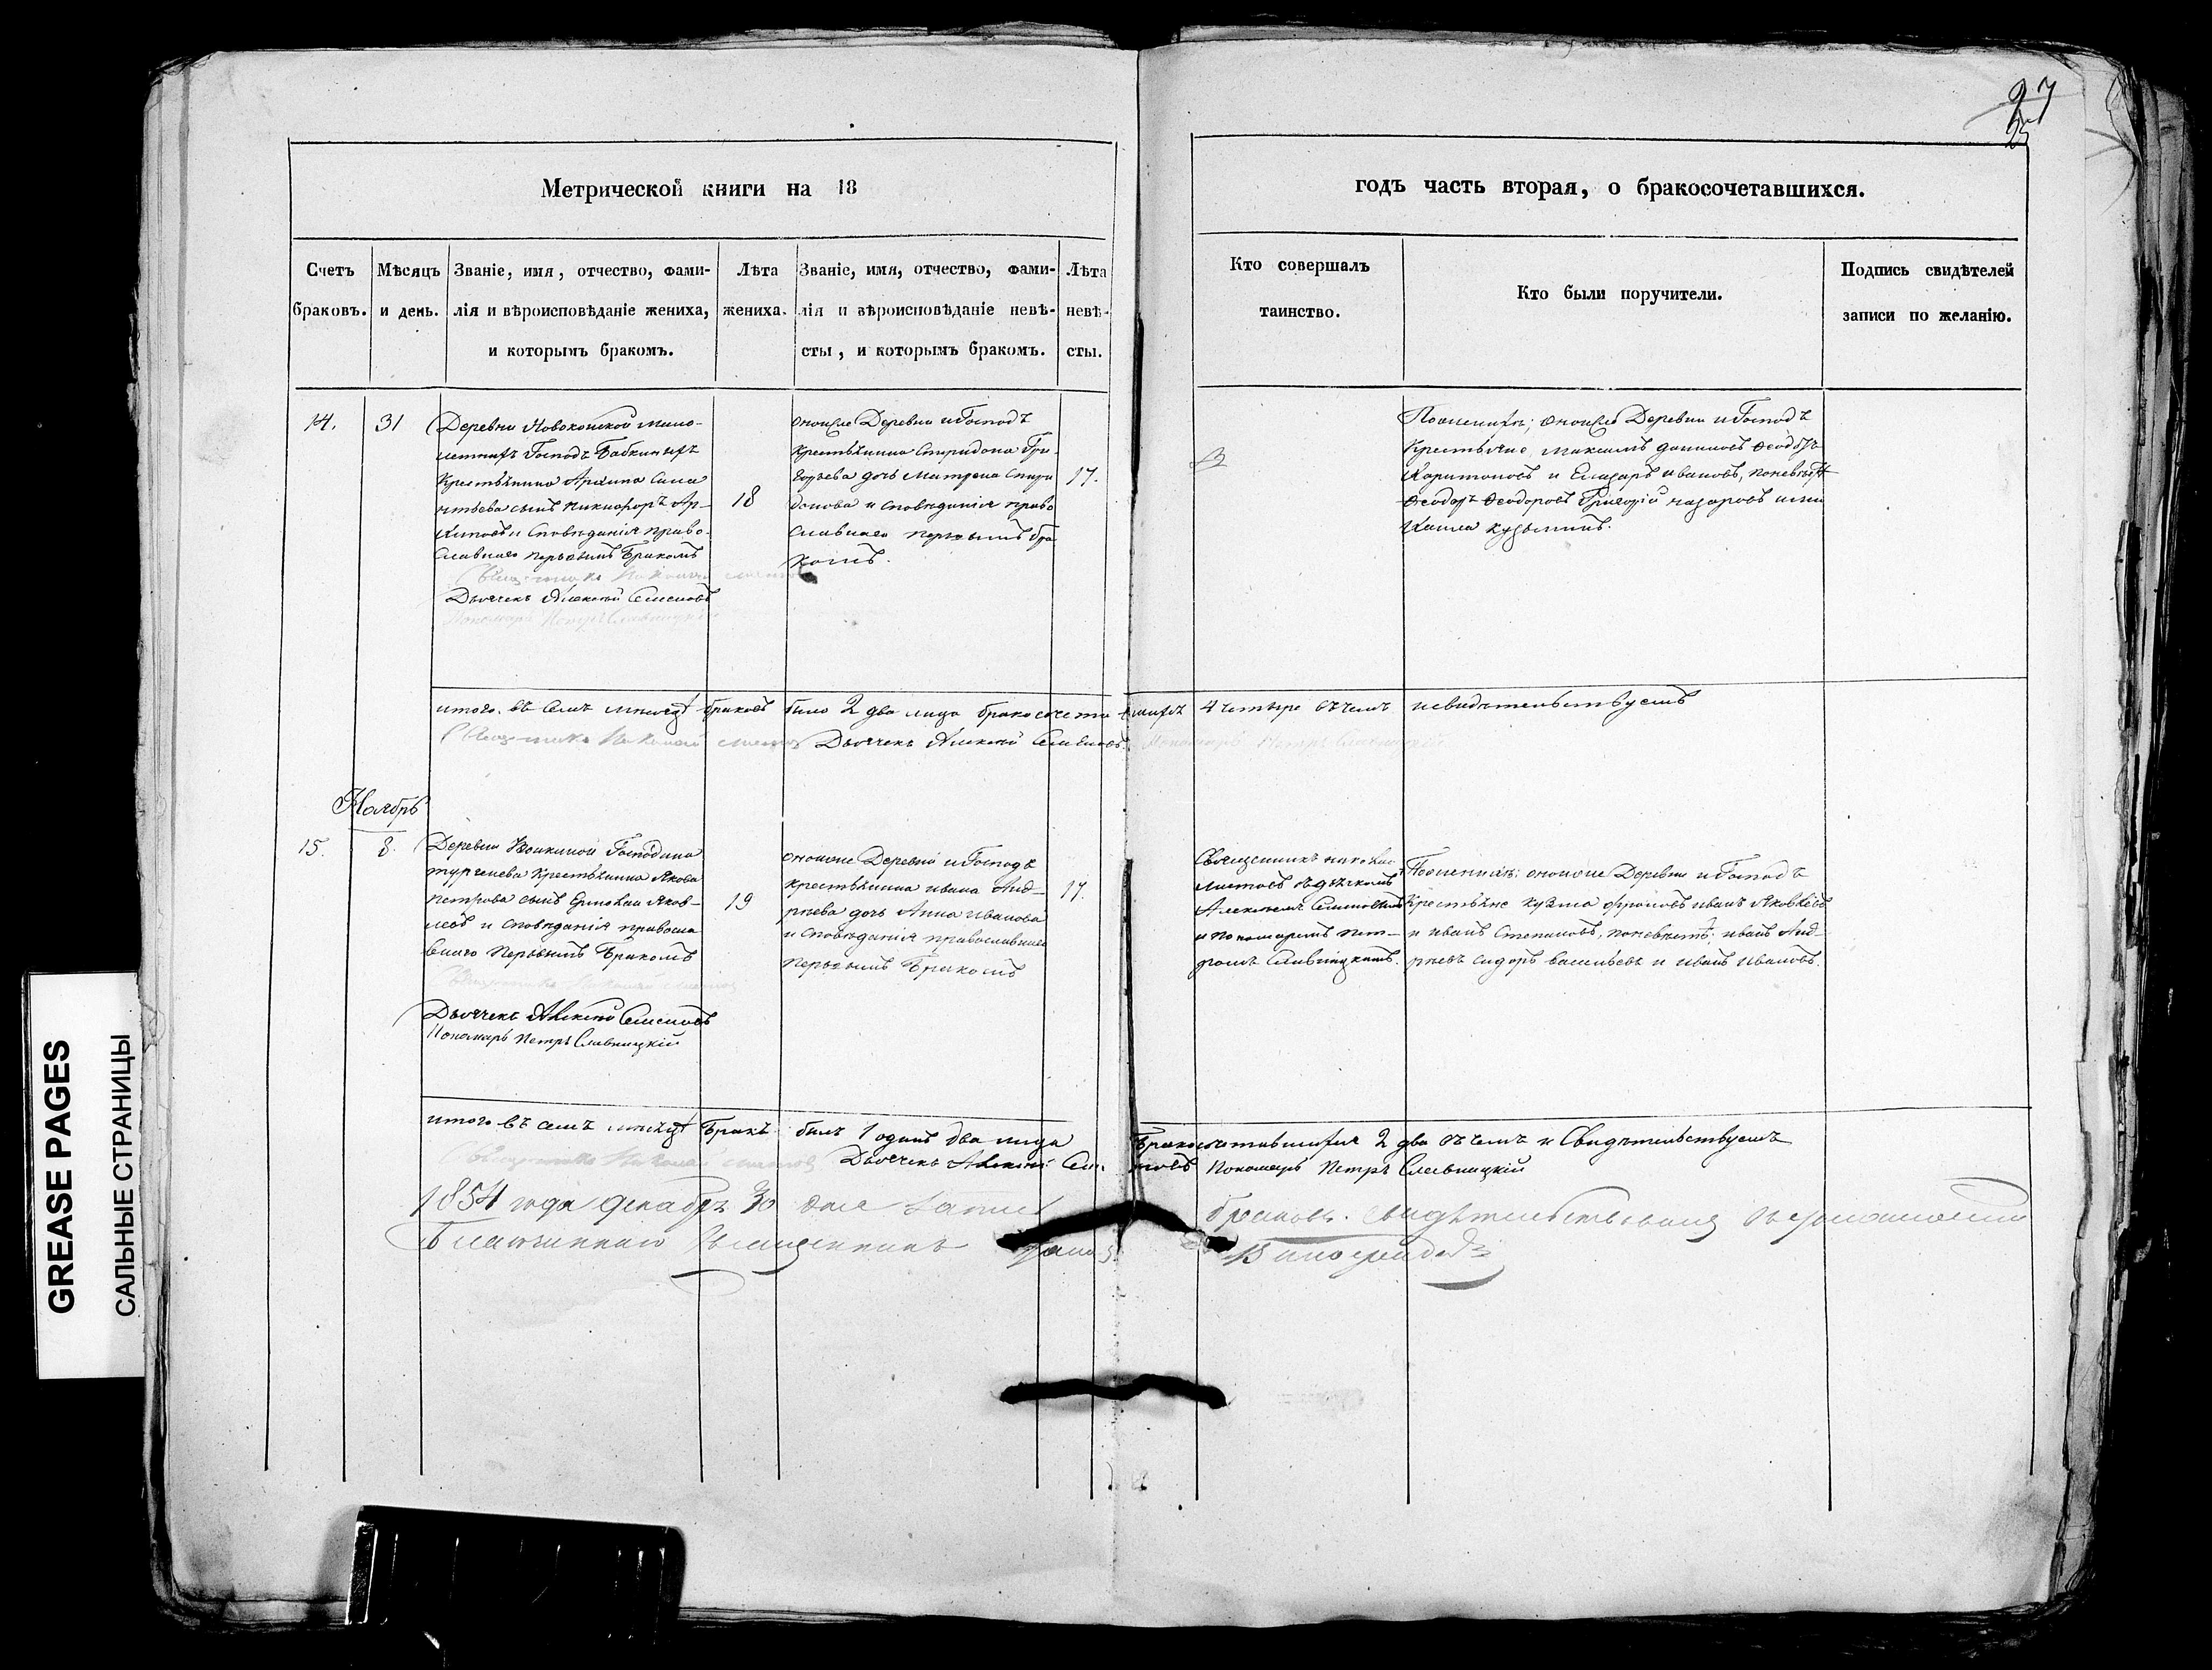 27
25
Метрической книги на 18
годъ часть вторая, о бракосочетавшихся.
Счетъ
браковъ.
Мѣсяцъ
и день.
Званіе, имя, отчество, фами-
лія и вѣроисповѣданіе жениха,
и которымъ бракомъ.
Лѣта
жениха.
Званіе, имя, отчество, фами-
лія и вѣроисповѣданіе невѣ-
сты, и которымъ бракомъ.
Лѣта
невѣ-
сты.
Кто совершалъ
таинство.
Кто были поручители.
Подпись свидѣтелей
записи по желанію.
14.
31
Деревни
Господъ Бабкиныхъ
Крестьянина Архипа
сынъ Никифоръ Ар-
хиповъ исповѣданія право-
славнаго первымъ бракомъ
Дьячекъ Алексѣй Семеновъ
18
оной же Деревни и Господъ
Крестьянина Спиридона Гри-
горьева дочь Матрена Спири
донова исповѣданія право
славнаго первымъ бра
комъ.
17.
По женихѣ; оной же Деревни и Господъ
Крестьяне, Максимъ Даниловъ Ѳеодоръ
Харитоновъ и Елизаръ Ивановъ, по невѣстѣ
Ѳеодоръ Ѳеодоровъ Григорій Назаровъ и Ми
хаила Кузьминъ.
итого въ семъ мѣсяцѣ браковъ было 2 два лица бракосочета вшихся 4 четыре въ чемъ и свидѣтельствуемъ
Дьячекъ Алексѣй Семеновъ
Ноябрь
15.
8.
Деревни Господина
Тургенева Крестьянина Якова
Петрова сынъ Яков-
левъ исповѣданія правосла
внаго первымъ бракомъ
Дьячекъ Алексѣй Семеновъ
Пономарь Петръ Славницкій
19
оной же Деревни и Господъ
Крестьянина Ивана Анд-
рѣева дочь Анна Иванова
исповѣданія православнаго
первымъ бракомъ
17.
Священникъ Николай
съ дьячкомъ
Алексѣемъ Семеновымъ
и пономаремъ Пет-
ромъ Славницкимъ.
По женихѣ: оной же Деревни и Господъ
Крестьяне Кузма Фроловъ Иванъ Яковлевъ
и Иванъ Степановъ, по невѣстѣ; Иванъ Анд-
рѣевъ Сидоръ Васильевъ и Иванъ Ивановъ.
итого въ семъ мѣсяцѣ бракъ былъ 1 одинъ два лица бракосочетавшихся 2 два въ чемъ и свидѣтельствуемъ
Дьячекъ Алексѣй Семеновъ Пономарь Петръ Славницкій
1854 года декабря 30 дня браковъ свидѣтельствовалъ
Благочинный Священникъ
GREASE PAGES
САЛЬНЫЕ СТРАНИЦЫ